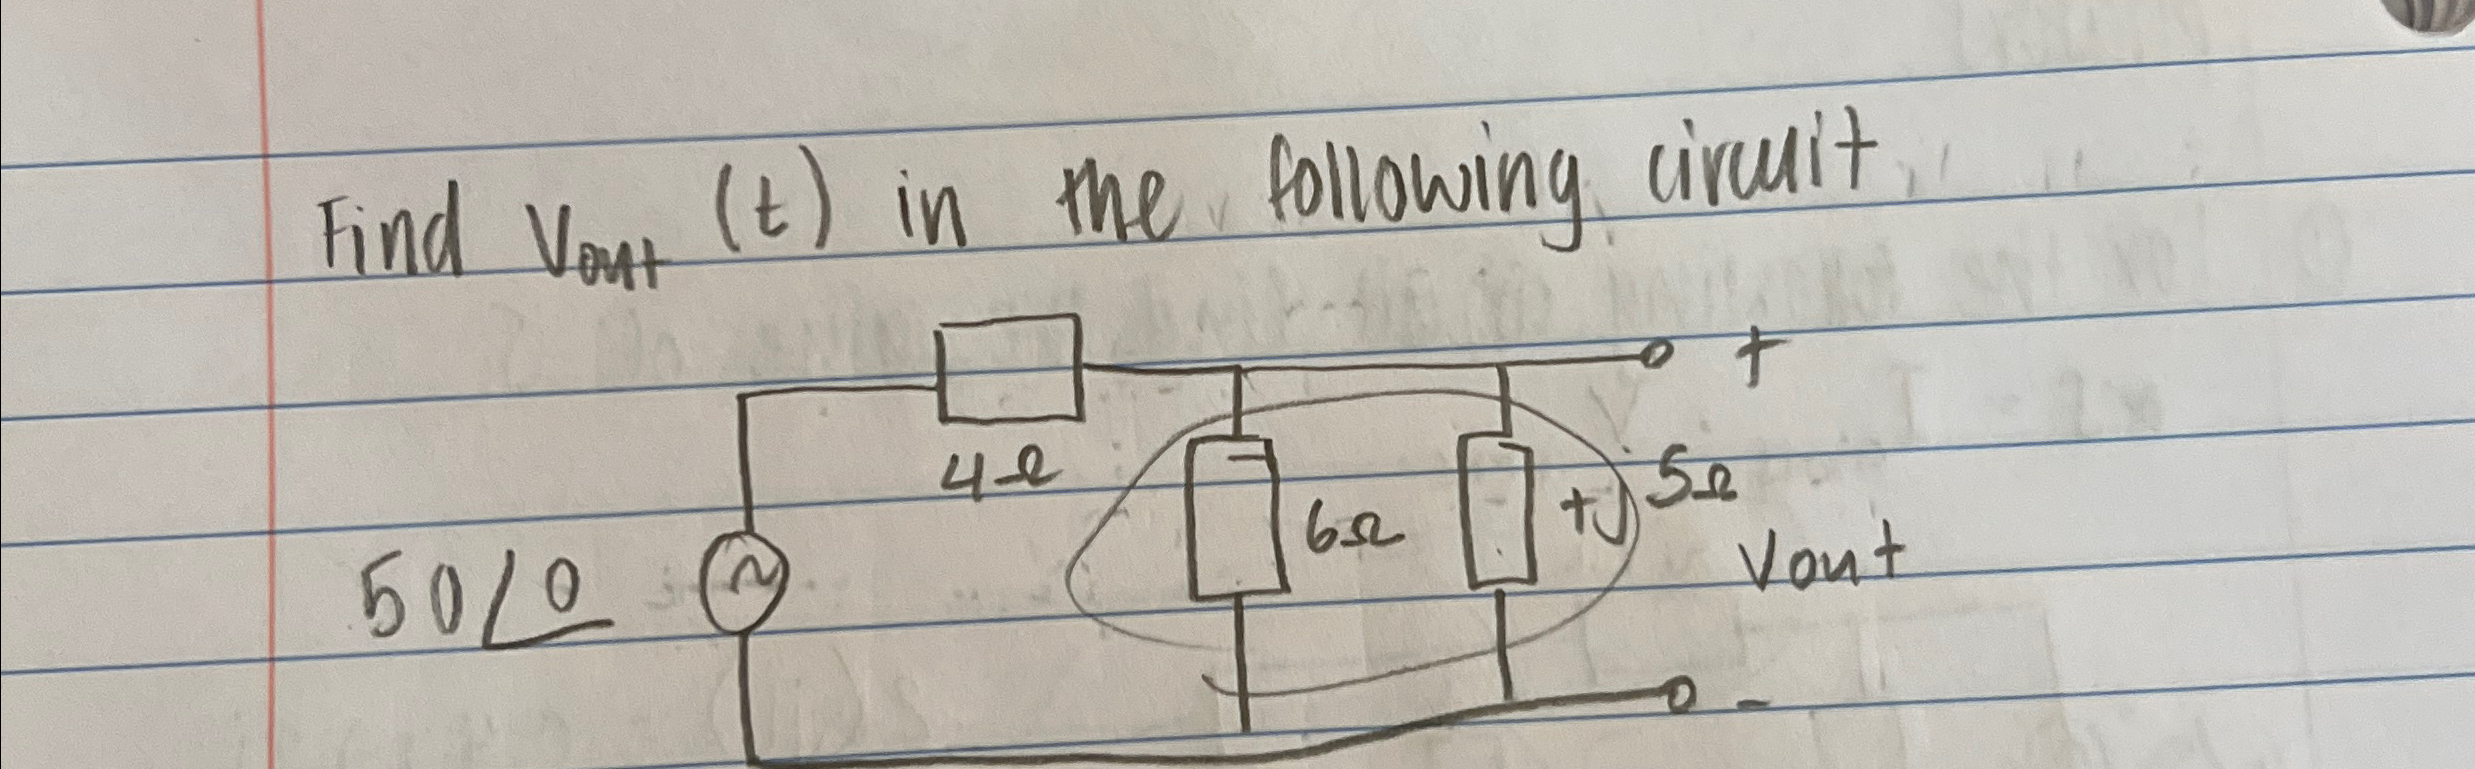 Find Vout (t) in the following circuit
+
4Ω
6Ω
+j5Ω
50∠0
Vout
-